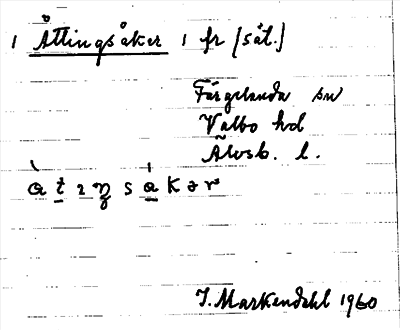 1 Åttingsåker 1 fr [sät.]
Färgelanda sn
Valbo hd
Älvsb. l.
a t ı ŋ s a k ə r
J. Markendahl 1960